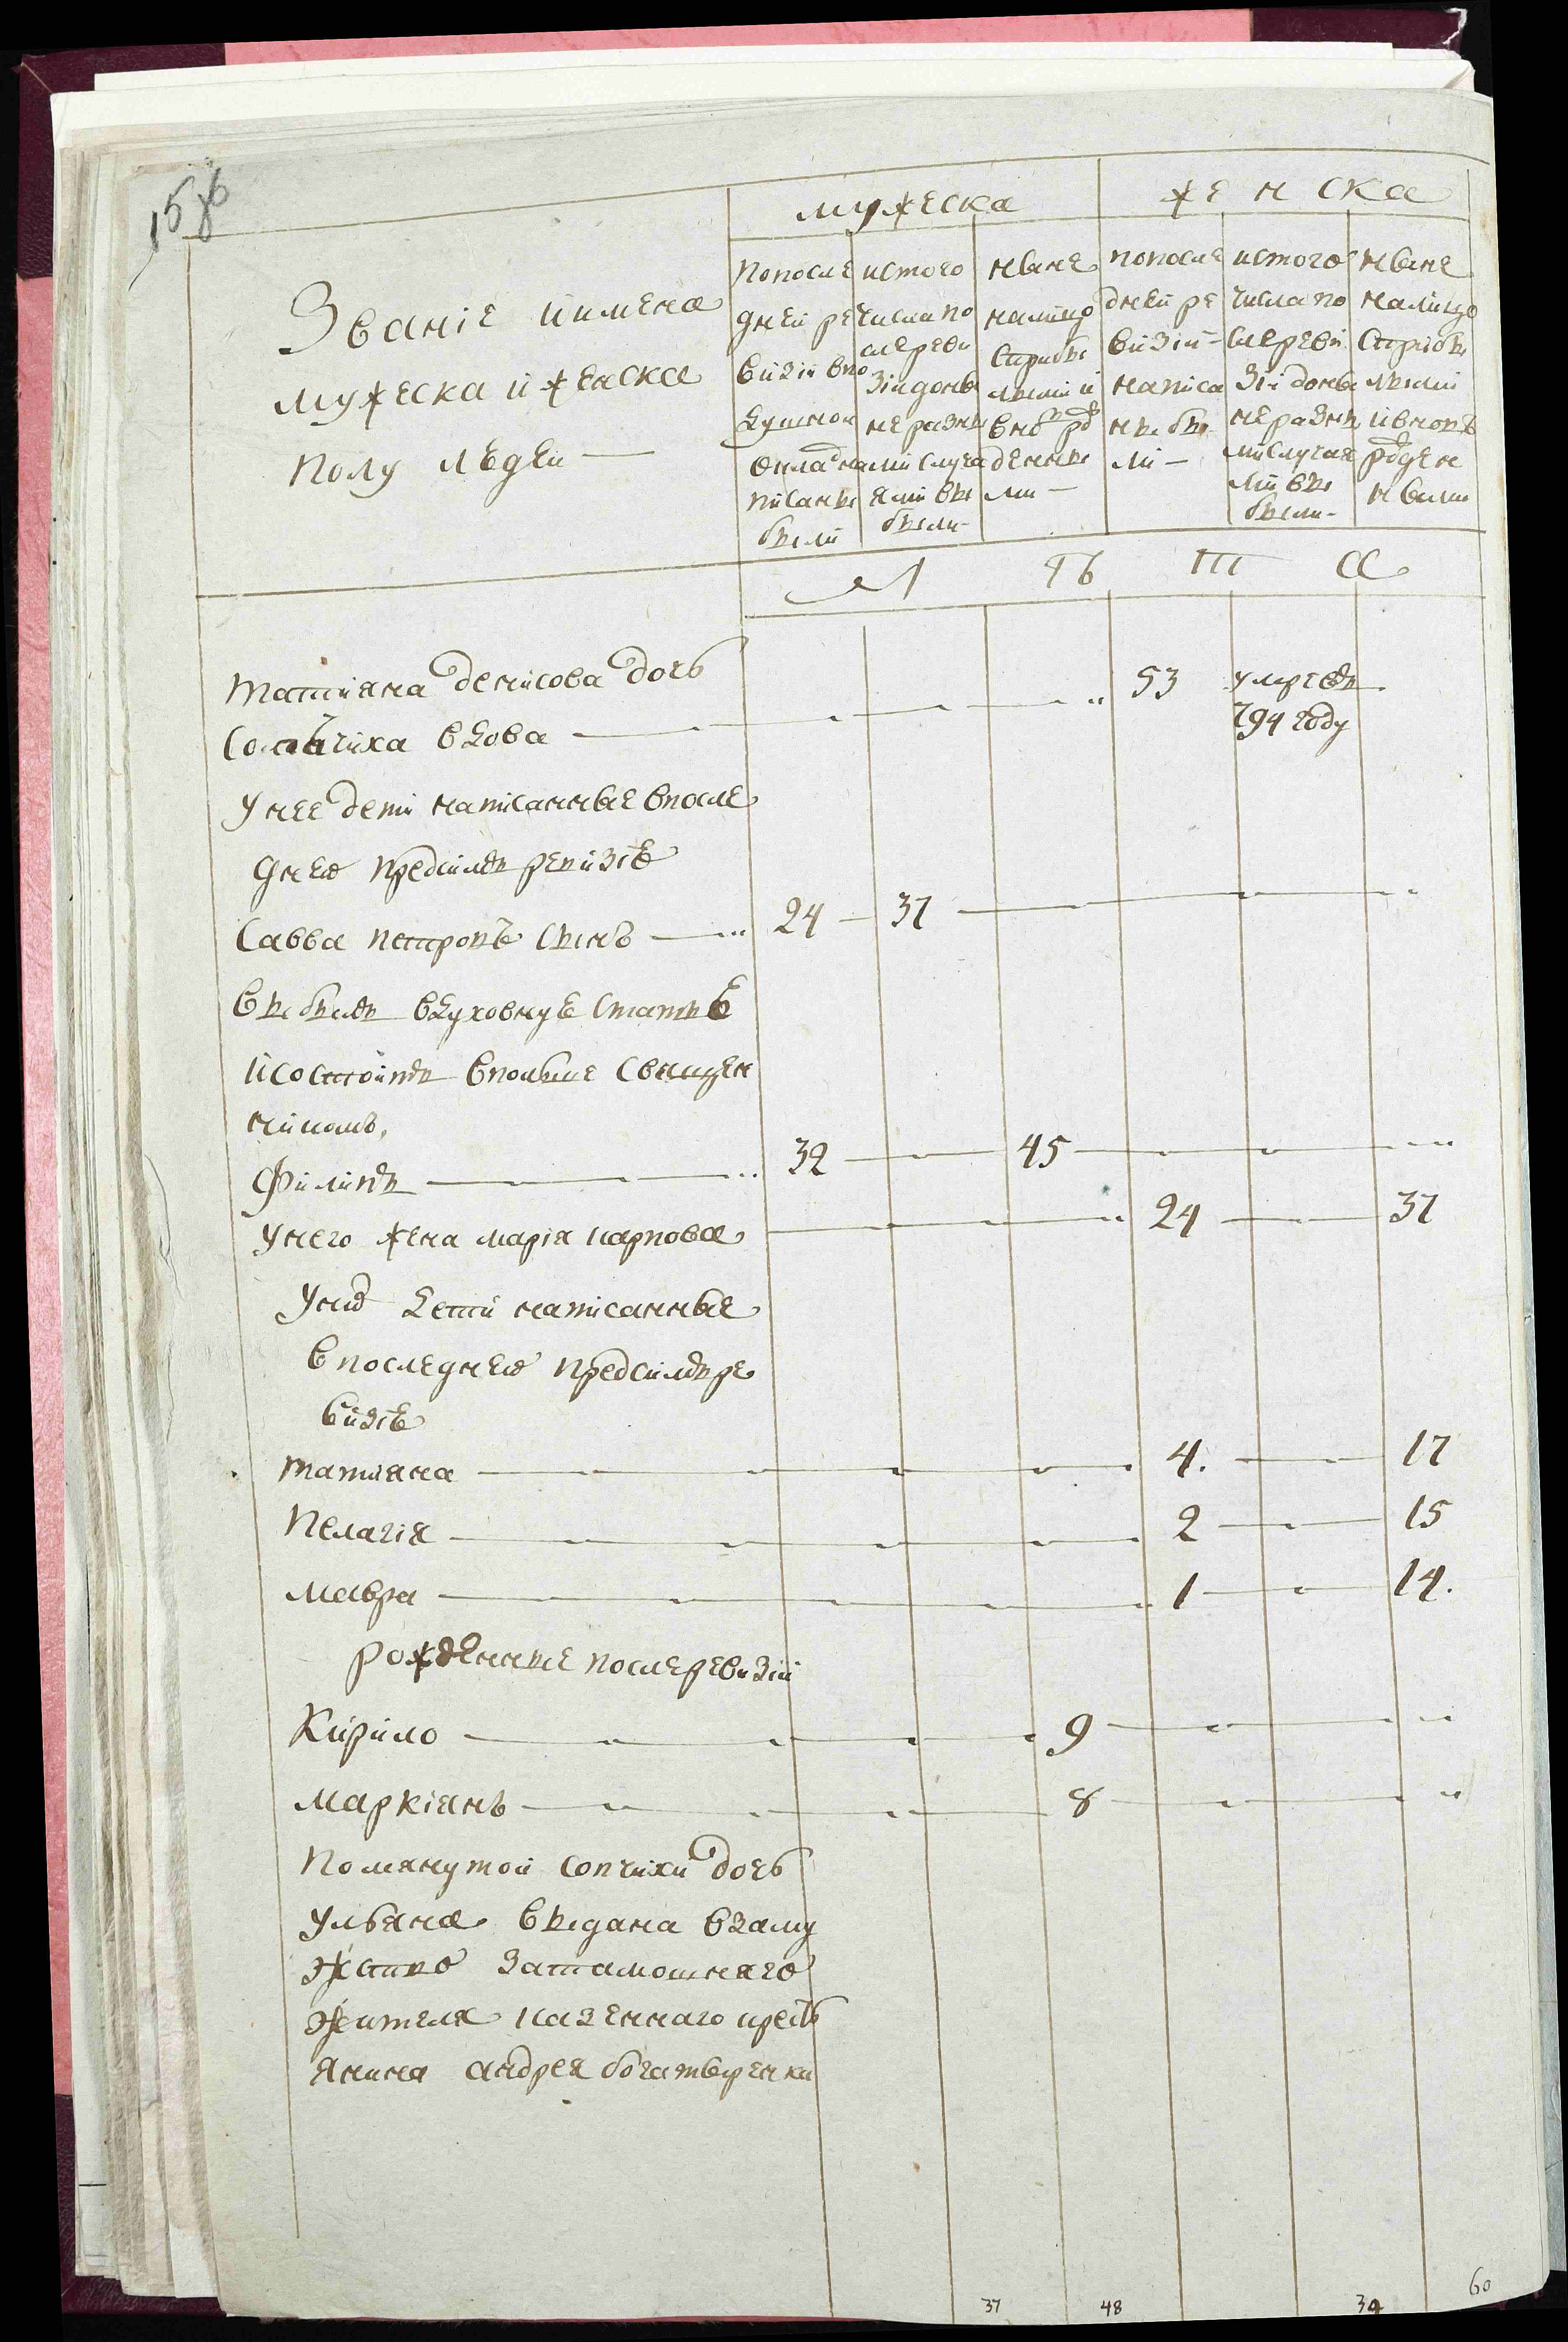 мужеска женска
Званіе и имена
мужеска и женска
полу людей —
по после
дней ре
визіи въ по
душной
окладъ на
писаны
были
ис того
числа по
сле реви
зіи до ны
не разны
ми случа
ями вы
были —
ныне
на лицо
с прибы
лыми и
вновь рож
денны
ми —
по после
дней ре
визіи —
написа
ны бы
ли —
ис того
числа по
сле реви
зіи до ны
не разны
ми случая
ми вы
были —
ныне
на лицо
с прибы
лыми
и вновь
рожден
ными
Л ѣ т а
Татияна денисова дочь 53 умре въ
вдова — 794 году
У нее дети написанные в после
дней пред симъ ревизіе
Савва петровъ сынъ — 24 — 37
выбылъ в духовную
и состоитъ в польше священ
никомъ,
Филипъ — 32 — 45
У него жена марія карпова 24 — 37
У них дети написанные
в последней пред симъ ре
визіе
татияна — 4. — 17
Пелагія — 2 — 15
мавра — 1 — 14.
рожденные после ревизіи
Кирило — 9
маркіянъ — 8
Помянутой сопчихи дочь
Ульяна выдана в заму
жство за тамошняго
жителя казеннаго кресть
янина андрея
37 48 34 60